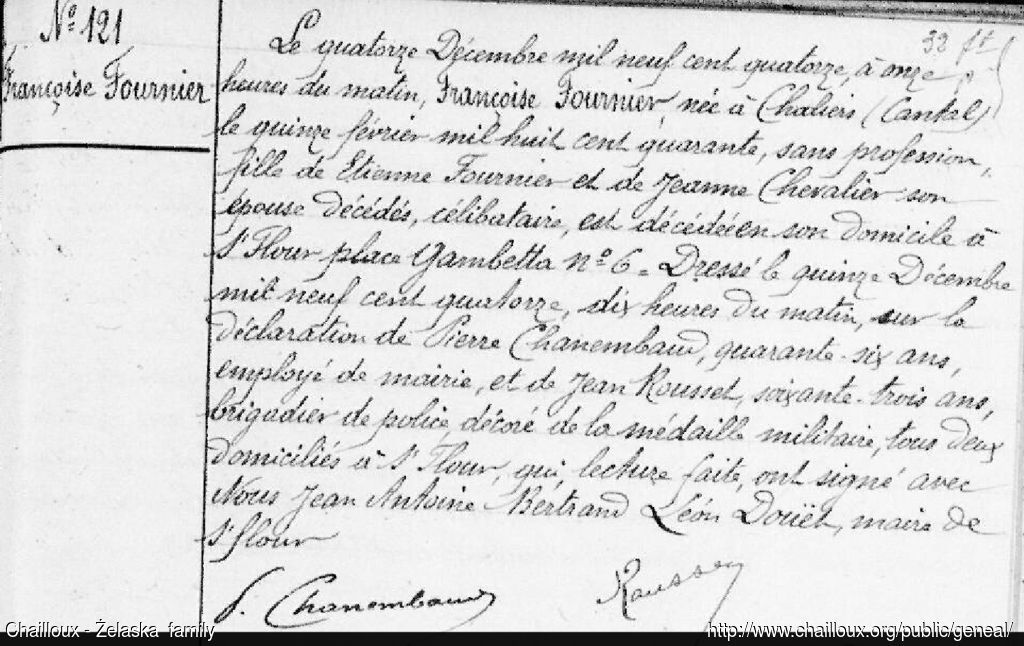 Nº 121
Françoise Fournier
32 ft
Le quatorze Décembre mil neuf cent quatorze, à onze
heures du matin, Françoise Fournier, née à Chaliers (Cantal)
le quinze février mil huit cent quarante, sans profession,
fille de Etienne Fournier et de Jeanne Chevalier son
épouse décédés, célibataire, est décédée en son domicile à
St Flour place Gambetta nº 6. Dressé le quinze Décembre
mil neuf cent quatorze, dix heures du matin, sur la
déclaration de Pierre Chanembaud, quarante-six ans,
employé de mairie, et de Jean Rousset, soixante-trois ans,
brigadier de police, décoré de la médaille militaire, tous deux
domiciliés à St Flour, qui, lecture faite, ont signé avec
Nous Jean Antoine Bertrand Léon Douët, maire de
St flour
P. Chanembaud
Rousset
Chailloux - Żelaska family
http://www.chailloux.org/public/geneal/